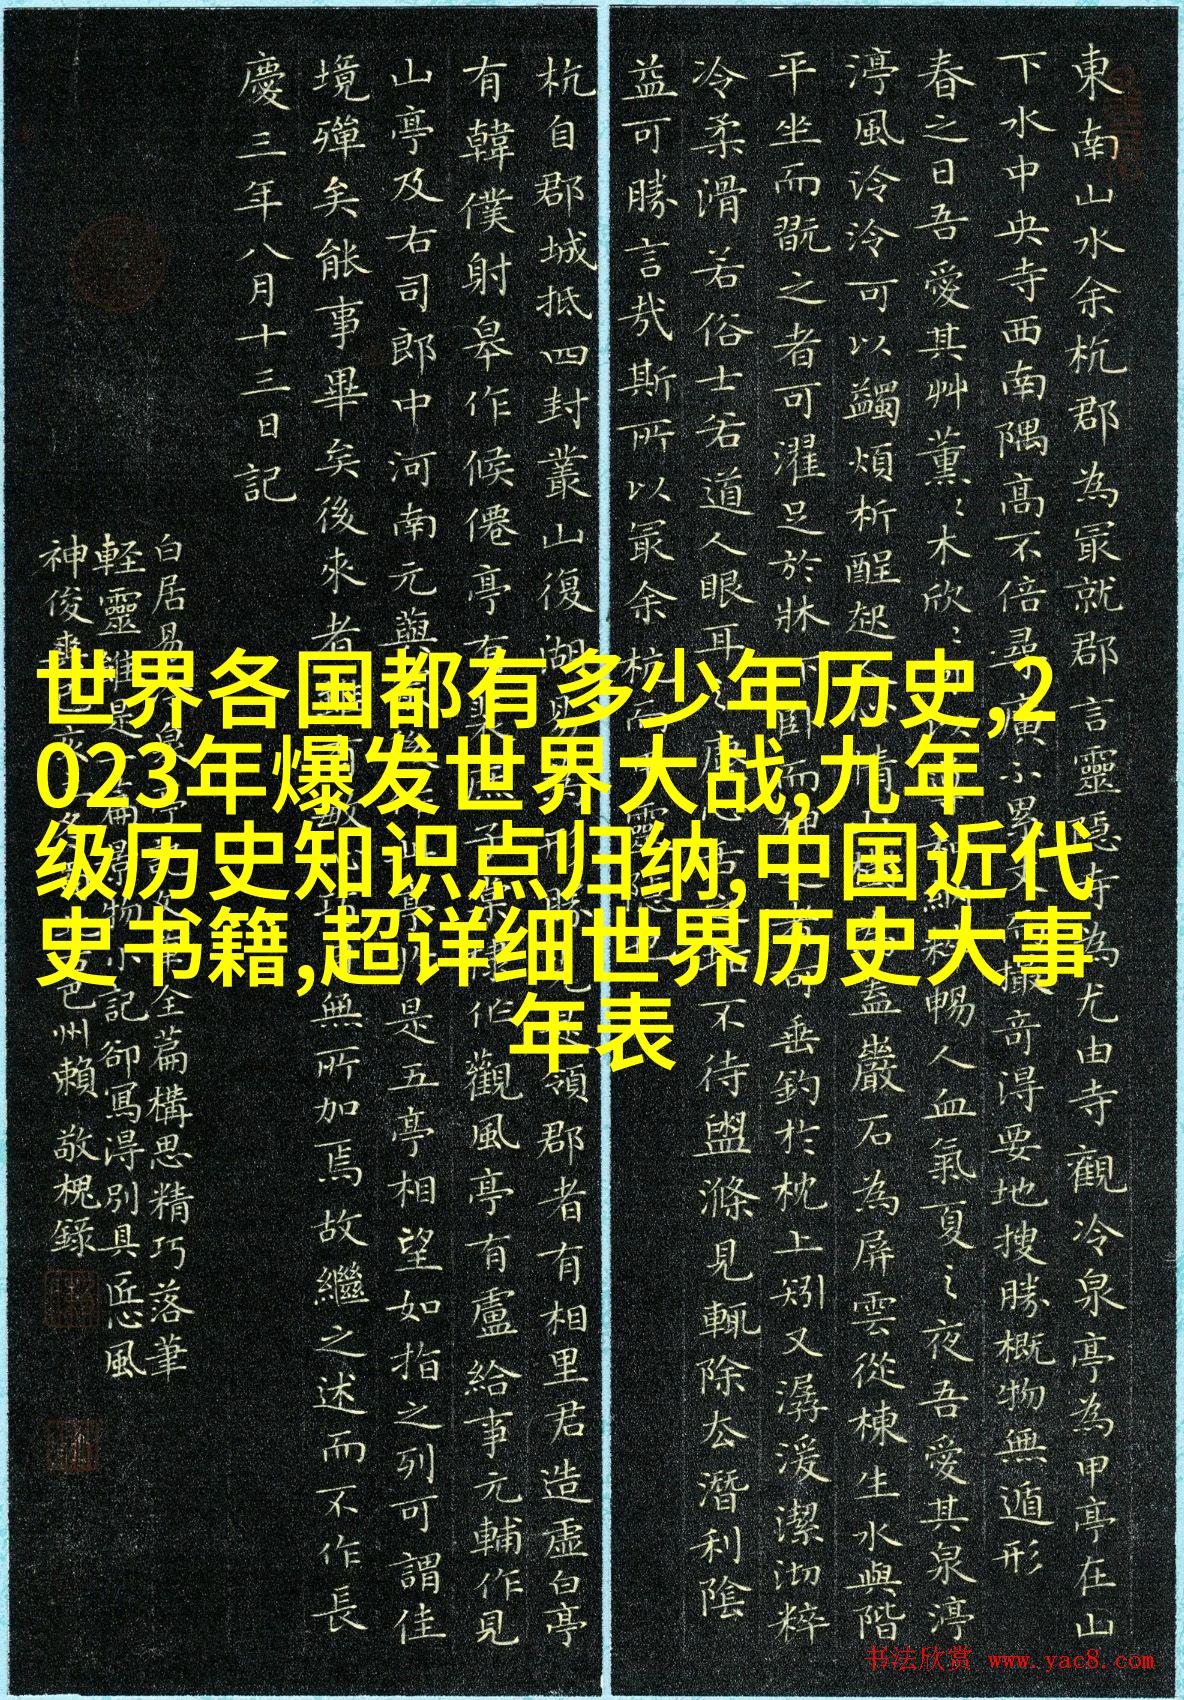 東南山水余杭郡為冣就郡言靈隱寺為尤由寺觀冷泉亭為甲亭在山
下水中央寺西南隅高不倍尋廣不累丈而撮奇得要地搜勝概物無遁形
春之日吾愛其艸薰〻木欣〻暢人血氣夏之夜吾愛其泉渟
渟風泠泠可以蠲煩析酲起盖巖石為屏雲從棟生水與階
平坐而翫之者可濯足於牀下垂釣於枕上矧又潺湲潔沏粹
冷柔滑若俗士若道人眼耳不待盥滌見輒除去潛利陰
益可勝言哉斯所以冣余杭而靈隱
杭自郡城抵四封叢山復湖領郡者有相里君造虛白亭
有韓僕射皋作候僊亭有裴作觀風亭有盧給事元輔作見
山亭及右司郎中河南元藇是五亭相望如指之列可謂佳
境殫矣能事畢矣後來者無所加焉故繼之述而不作長
慶三年八月十三日記
白居易全篇構思精巧落筆
軽靈雖是景物小記卻寫得別具匠心風
神俊爽州賴敬槐錄
世界各国都有多少年历史,2
023年爆发世界大战,九年
级历史知识点归纳,中国近代
史书籍,超详细世界历史大事
年表
书法欣赏 www.yac8.com